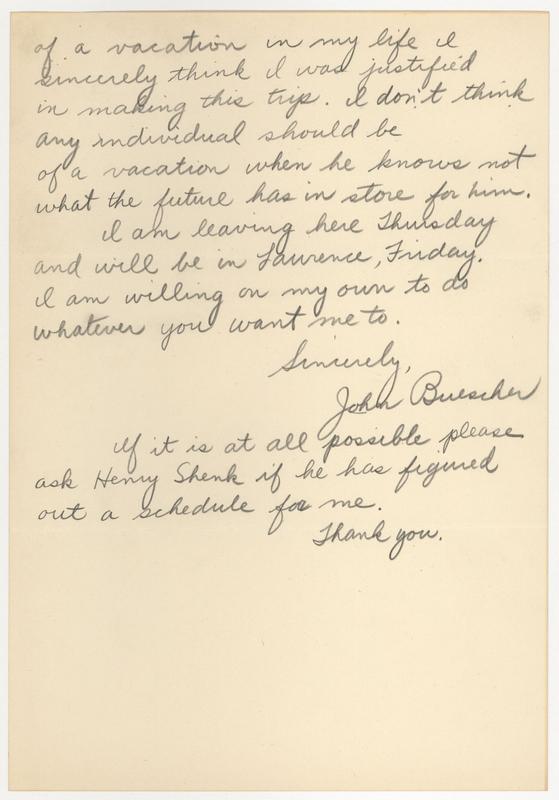 of a vacation in my life I
sincerely think I was justified
in making this trip. I don't think
any individual should be
of a vacation when he knows not
what the future has in store for him.
I am leaving here Thursday
and will be in Lawrence, Friday.
I am willing on my own to do
whatever you want me to.
Sincerely,
John Buescher
If it is at all possible please
ask Henry Shenk if he has figured
out a schedule for me.
Thank you.